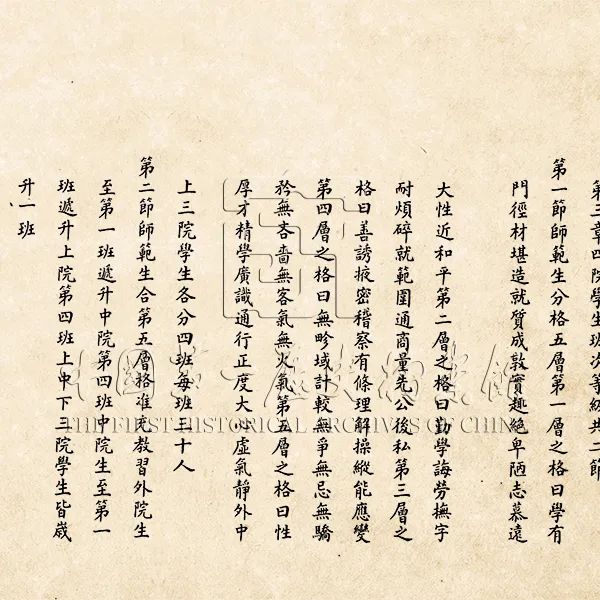 第三章四院學生班次等級共二節
第一節師範生分格五層第一層之格曰學有
門徑材堪造就質成敦實趣絶卑陋志慕遠
大性近和平第二層之格曰勤學誨勞撫字
耐煩碎就範圍通商量先公後私第三層之
格曰善誘掖密稽察有條理解操縱能應變
第四層之格曰無畛域計較無爭無忌無驕
矜無吝嗇無客氣無火氣第五層之格曰性
厚才精學廣識通行正度大心虛氣靜外中
上三院學生各分四班每班三十人
第二節師範生合第五層格准充教習外院生
至第一班遞升中院第四班中院生至第一
班遞升上院第四班上中下三院學生皆嵗
升一班
中國第一歷史檔案館
THE FIRST HISTORICAL ARCHIVES OF CHINA